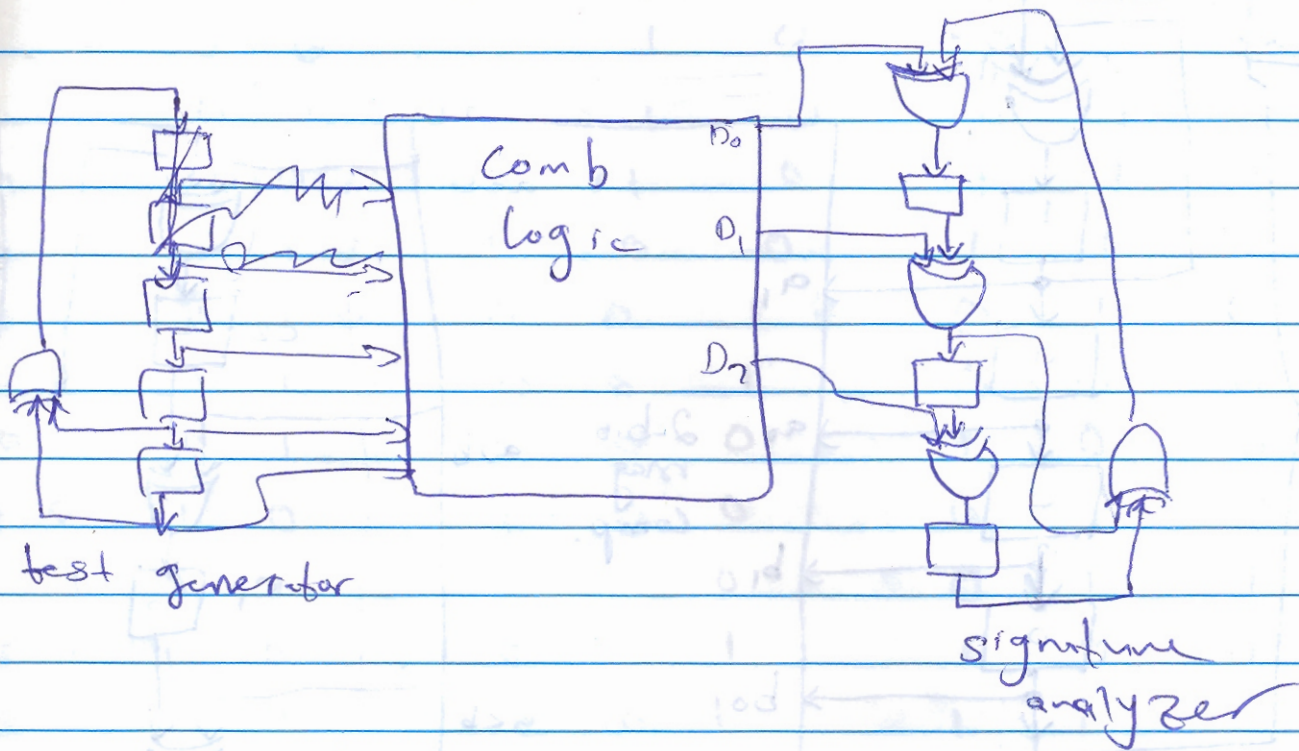 Comb
logic
D0
D1
D2
test generator
signature
analyzer